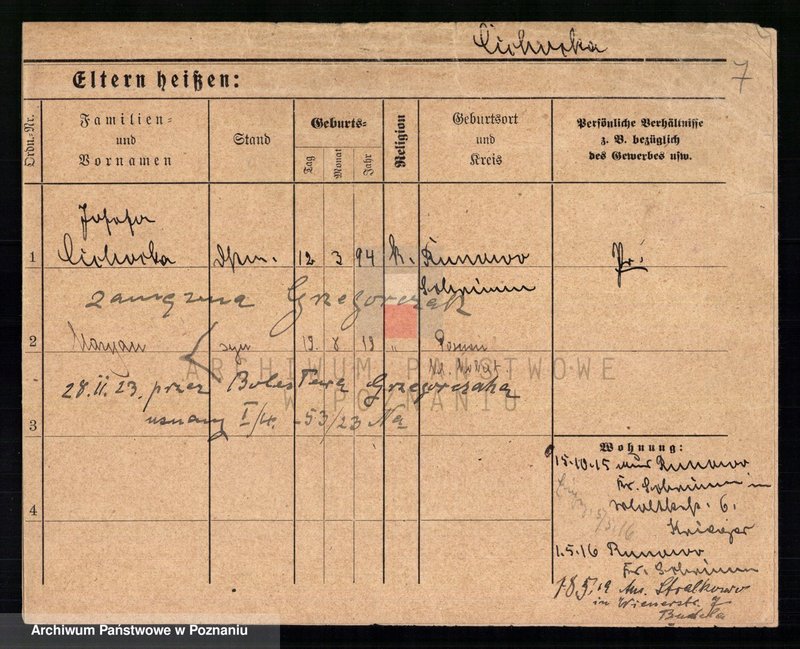 Cichocka
7
Eltern heißen:
Ordn.-Nr.
Familien-
und
Vornamen
Stand
Geburts-
Tag
Monat
Jahr
Religion
Geburtsort
und
Kreis
Persönliche Verhältnisse
z. B. bezüglich
des Gewerbes usw.
Josefa
1 Cichocka 12 3 94 k. Runowo Pr.
Schrimm
zamężna Grzegorczak
2 Maryan syn 19 8 19 " Posen
28.II.23. przez Bolesława Grzegorczaka
uznany 53/23 Na
3
4
Wohnung:
15.10.15 aus Runowo
Kr. Schrimm in
6.
1.5.16 Runowo
Kr. Schrimm
18.5.19 Aus Stralkowo
in Wienerstr. 7
ARCHIWUM PAŃSTWOWE
W POZNANIU
Archiwum Państwowe w Poznaniu